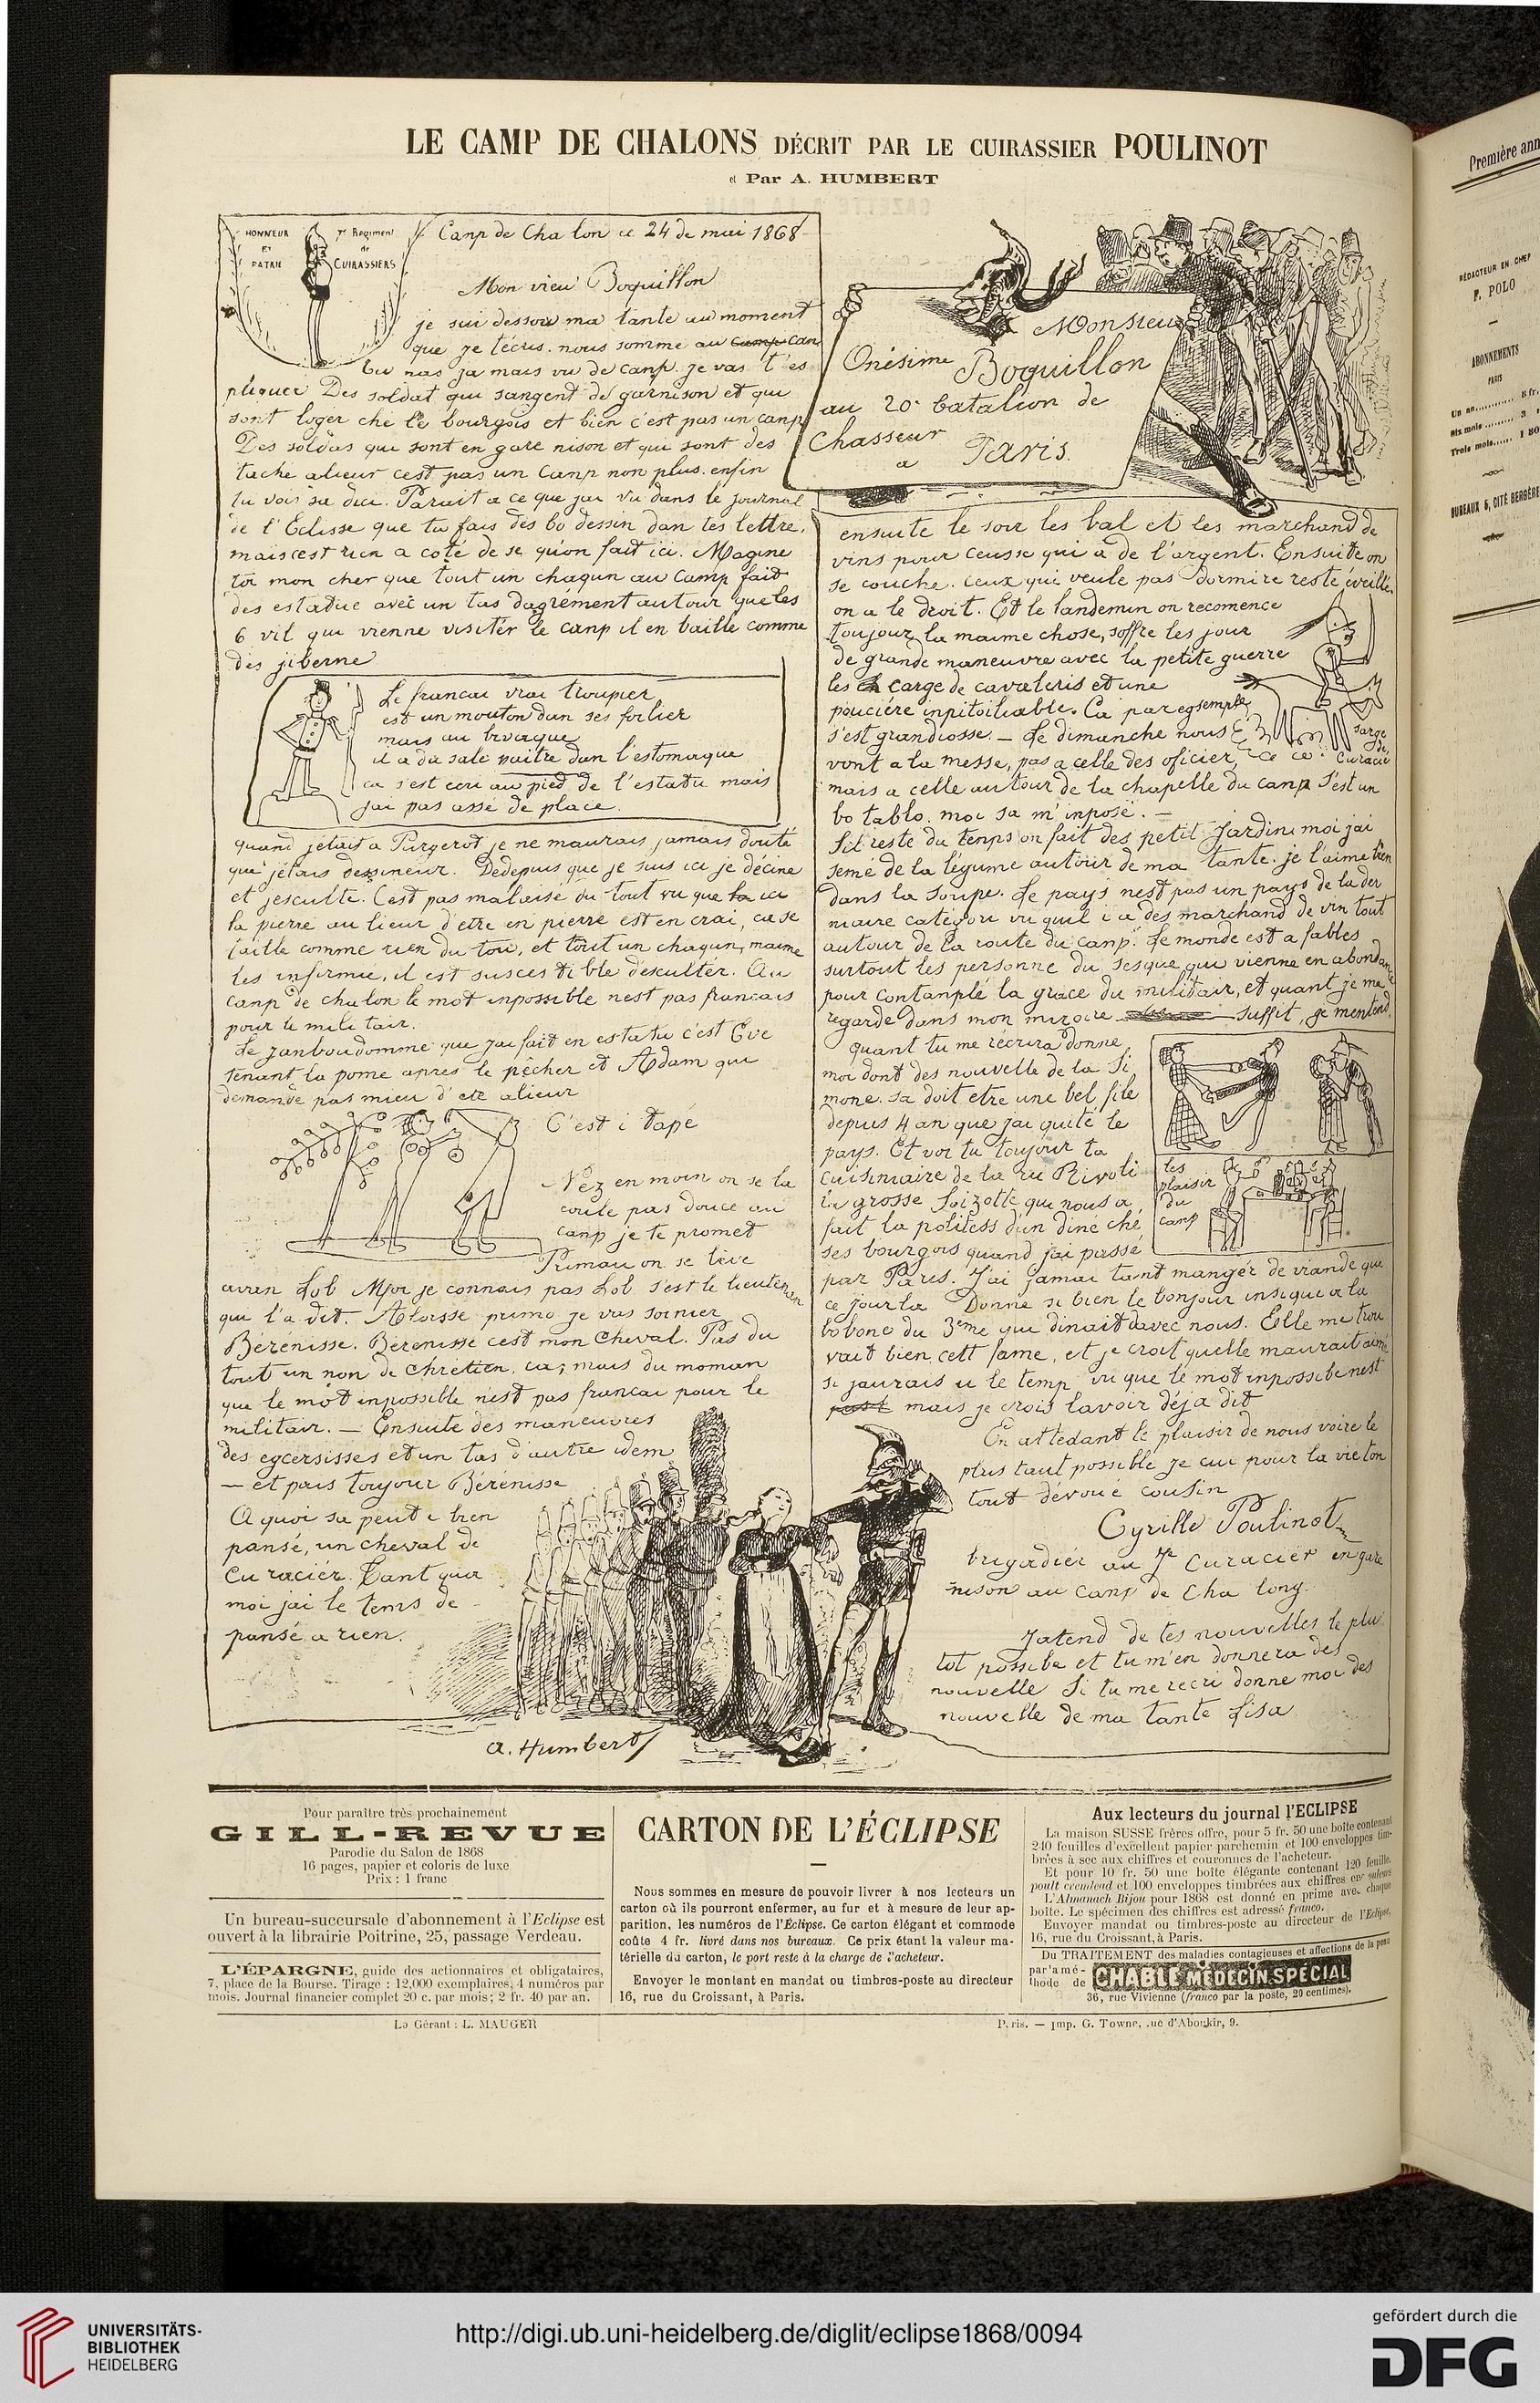 LE CAMP DE CHALONS DÉCRIT PAR LE CUIRASSIER POULINOT
et Par A. HUMBERT
HONNEUR
ET
PATRIE
7e Regiment
de
CUIRASSIERS
Canp de Cha lon ce 24 de mai 1868
Mon vieu Boquillon
je sui dessou ma tante au moment
que je técris. nous somme au camp can
tu nas ja mais vu de canp. je vas t'es
pliquer Des soldat qui sangent de garnison et qui
sont loger ché le bourgois et bien c'est pas un canp
Des soldas qui sont en gare nison et qui sont des
tache alieur cest pas un Canp non plus. enfin
tu vois sa dici. Parait a ce que jai vu dans le journal
de l'Eclisse que tu fais des bo dessin dan les lettre,
mais cest rien a coté de se qu'on fait ici. Magine
toi mon cher que tout un chaqun au Camp fait
des estatue avec un tas dagrément autour que les
6 vil qui vienne visiter le canp il en baille comme
des jiberne
Le francai vrai troupier
est un mouton dan ses foilier
mais au bivaque
il a du sale paitre dan l'estomaque
ca s'est ecri au pied de l'estatu mais
jai pas assé de place.
quand jétais a Pirgerot je ne maurais jamais douté
que jétais dessineur. Dedepuis que je suis ici je décine
et jesculte. Cest pas malaisé du tout vu que la ici
la pierre au lieur d'etre en pierre est en crai, ca se
taille comme rien du tou, et tout un chaqun, maime
les infirmie, il est susces tible desculter. Au
canp de cha lon le mot inpossible nest pas francais
pour le mili tair.
Le janboudomme que jai fait en estatu c'est Eve
tenant la pome apres le pêcher et Adam qui
demande pas mieu d'etre alieur
C'est i tapé
Nez en moin on se la
coule pas douce au
canp je te promet
Primau on se leve
avan Lob Moi je connais pas Lob s'est le lieutenan
qui l'a dit. Aloisse primo je vas soinier
Bérénisse. Bérénisse cest mon cheval. Pas du
tout un non de chrétien, ca; mais du moman
que le mot inpossible nest pas francai pour le
militair. — Ensuite des maneuvres
des egcersisses et un tas d'autre idem
— et pais toujour Bérénisse
A quoi sa peut i bien
pansé, un cheval de
Cu raciér. Tant qua
moi jai le tems de
pansé a rien.
Monsieur
Onésime Boquillon
au 20e batalion de
Chasseur
a Paris.
ensuite le soir les bal et les marchand de
vins pour ceusse qui a de l'argent. Ensuite on
se couche. ceux qui veule pas dormire reste éveillé.
on a le droit. Et le landemin on recomence
toujour la maime chose, soffre les jour
de grande maneuvre avec la petite guerre
les carge de cavaleris et une
pouciére inpitoiliable. Ca par egsemple
s'est grandiosse. — Le dimanche nous
vont a la messe, pas a celle des oficier,
mais a celle autour de la chapelle du canp s'est un
bo tablo. moi sa m'inpose. —
sarge
de
Curacié
Sil reste du temps on fait des petit Jardin moi jai
semé de la légume autour de ma tante. je l'aime bien
dans la soupe. Le pays nest pas un pays de la der
niaire catégori vu quil i a des marchand de vin tout
autour de la route du canp. Le monde est a fables
surtout les personne du sesque qui vienne en abondance
pour contanplé la grace du militair, et quant je me
regarde dans mon miroire suffit, je mentend.
quant tu me récrira donne
moi dont des nouvelle de la Si
mone. sa doit etre une bel file
depuis 4 an que jai quité le
pays. Et voi tu toujour ta
cuisiniaire de la ru Rivoli
la grosse Loizotte qui nous a
fait la politess dun diné ché
ses bourgois quand jai passé
par Paris. J'ai jamai tant mangér de viande que
ce jour la Donne si bien le bonjour insique a la
bobone du 3eme qui dinait davec nous. Elle me trou
vait bien cett fame, et je croit quelle maurait aimé
si jaurais u le temp vu que le mot inpossibe nest
past mais je crois lavoir déja dit
les
plaisir
du
canp
En attedant le plaisir de nous voire le
plus taut possible je cui pour la vie ton
tout dévoué cousin
Cyrille Poulinot
brigadiér au 7e Curaciér en gare
nison au canp de Cha long
Jatend de tes nouvelles le plu
tot possibe et tu m'en donnera des
nouvelle Si tu me recri donne moi des
nouvelle de ma tante Lisa
A. Humbert
Pour paraître très prochainement
GILL-REVUE
Parodie du Salon de 1868
16 pages, papier et coloris de luxe
Prix : 1 franc
Un bureau-succursale d'abonnement à l'Eclipse est
ouvert à la librairie Poitrine, 25, passage Verdeau.
L'ÉPARGNE, guide des actionnaires et obligataires,
7, place de la Bourse. Tirage : 12,000 exemplaires, 4 numéros par
mois. Journal financier complet 20 c. par mois; 2 fr. 40 par an.
CARTON DE L'ÉCLIPSE
Nous sommes en mesure de pouvoir livrer à nos lecteurs un
carton où ils pourront enfermer, au fur et à mesure de leur ap-
parition, les numéros de l'Éclipse. Ce carton élégant et commode
coûte 4 fr. livré dans nos bureaux. Ce prix étant la valeur ma-
térielle du carton, le port reste à la charge de l'acheteur.
Envoyer le montant en mandat ou timbres-poste au directeur
16, rue du Croissant, à Paris.
Aux lecteurs du journal l'ECLIPSE
La maison SUSSE frères offre, pour 5 fr. 50 une boîte contenant
240 feuilles d'excellent papier parchemin et 100 enveloppes tim-
brées à sec aux chiffres et couronnes de l'acheteur.
Et pour 10 fr. 50 une boîte élégante contenant 120 feuilles
poult et 100 enveloppes timbrées aux chiffres en couleurs
L'Almanach Bijou pour 1868 est donné en prime avec chaque
boîte. Le spécimen des chiffres est adressé franco.
Envoyer mandat ou timbres-poste au directeur de l'Eclipse,
16, rue du Croissant, à Paris.
Du TRAITEMENT des maladies contagieuses et affections de la peau
par la mé-
thode de CHABLE MÉDECIN SPÉCIAL
36, rue Vivienne (franco par la poste, 20 centimes).
Le Gérant : L. MAUGER
Paris. — Imp. G. Towne, rue d'Aboukir, 9.
Première ann
RÉDACTEUR EN CHEF
F. POLO
ABONNEMENTS
PARIS
Un an 8 fr.
Six mois
Trois mois
BUREAUX 5, CITÉ BERGÈRE
UNIVERSITÄTS-
BIBLIOTHEK
HEIDELBERG
http://digi.ub.uni-heidelberg.de/diglit/eclipse1868/0094
gefördert durch die
DFG